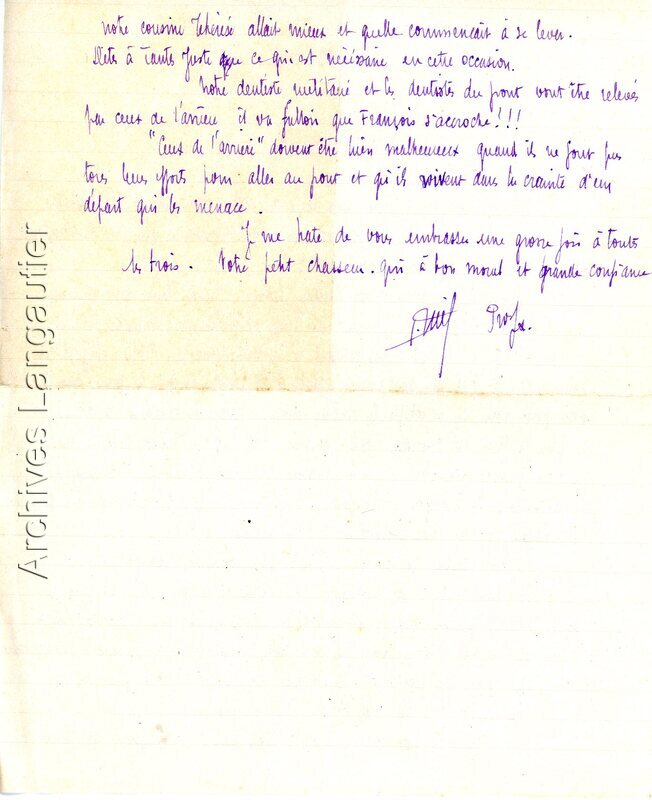 notre cousine Thérèse allait mieux et quelle commencait à se lever.
Dites à Tante Juste que ce qui est nécéssaire en cette occasion.
Notre dentiste militaire et les dentistes du front vont être relevés
par ceux de l'arrière il va falloir que François s'accroche!!!
"Ceux de l'arrière" doivent être bien malheureux quand ils ne font pas
tous leurs efforts pour aller au front et qu'ils vivent dans la crainte d'un
départ qui les menace.
Je me hate de vous embrasser une grosse fois à toutes
les trois. Votre petit chasseur qui à bon moral et grande confiance
Archives Langautier